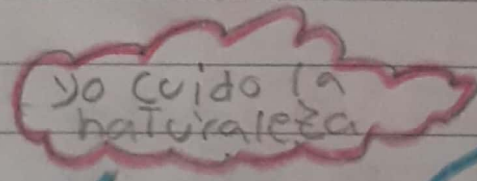 yo cuido la
naturaleza